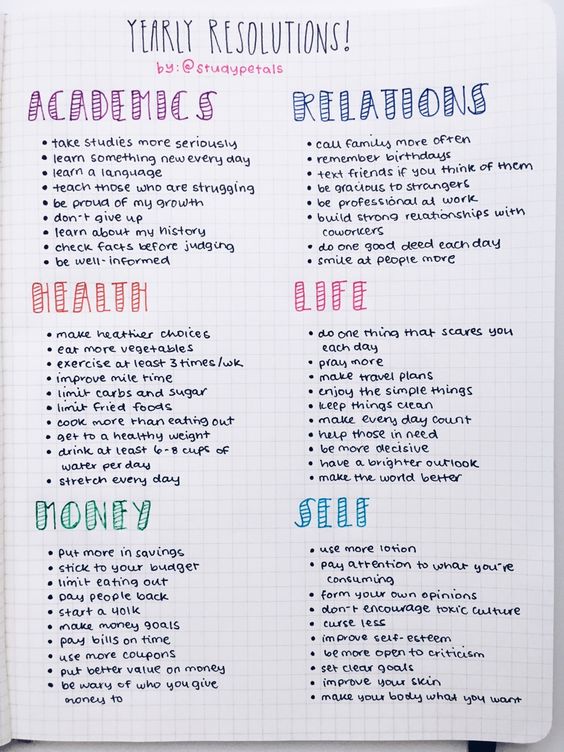 YEARLY RESOLUTIONS!
by:@studypetals
ACADEMICS
• take studies more seriously
• learn something new every day
• learn a language
• teach those who are struggling
• be proud of my growth
• don't give up
• learn about my history
• check facts before judging
• be well-informed
RELATIONS
• call family more often
• remember birthdays
• text friends if you think of them
• be gracious to strangers
• be professional at work
• build strong relationships with
coworkers
• do one good deed each day
• smile at people more
HEALTH
• make healthier choices
• eat more vegetables
• exercise at least 3 times/wk
• improve mile time
• limit carbs and sugar
• limit fried foods
• cook more than eating out
• get to a healthy weight
• drink at least 6-8 cups of
water per day
• stretch every day
LIFE
• do one thing that scares you
each day
• pray more
• make travel plans
• enjoy the simple things
• keep things clean
• make every day count
• help those in need
• be more decisive
• have a brighter outlook
• make the world better
MONEY
• put more in savings
• stick to your budget
• limit eating out
• pay people back
• start a 401k
• make money goals
• pay bills on time
• use more coupons
• put better value on money
• be wary of who you give
money to
SELF
• use more lotion
• pay attention to what you're
consuming
• form your own opinions
• don't encourage toxic culture
• curse less
• improve self-esteem
• be more open to criticism
• set clear goals
• improve your skin
• make your body what you want